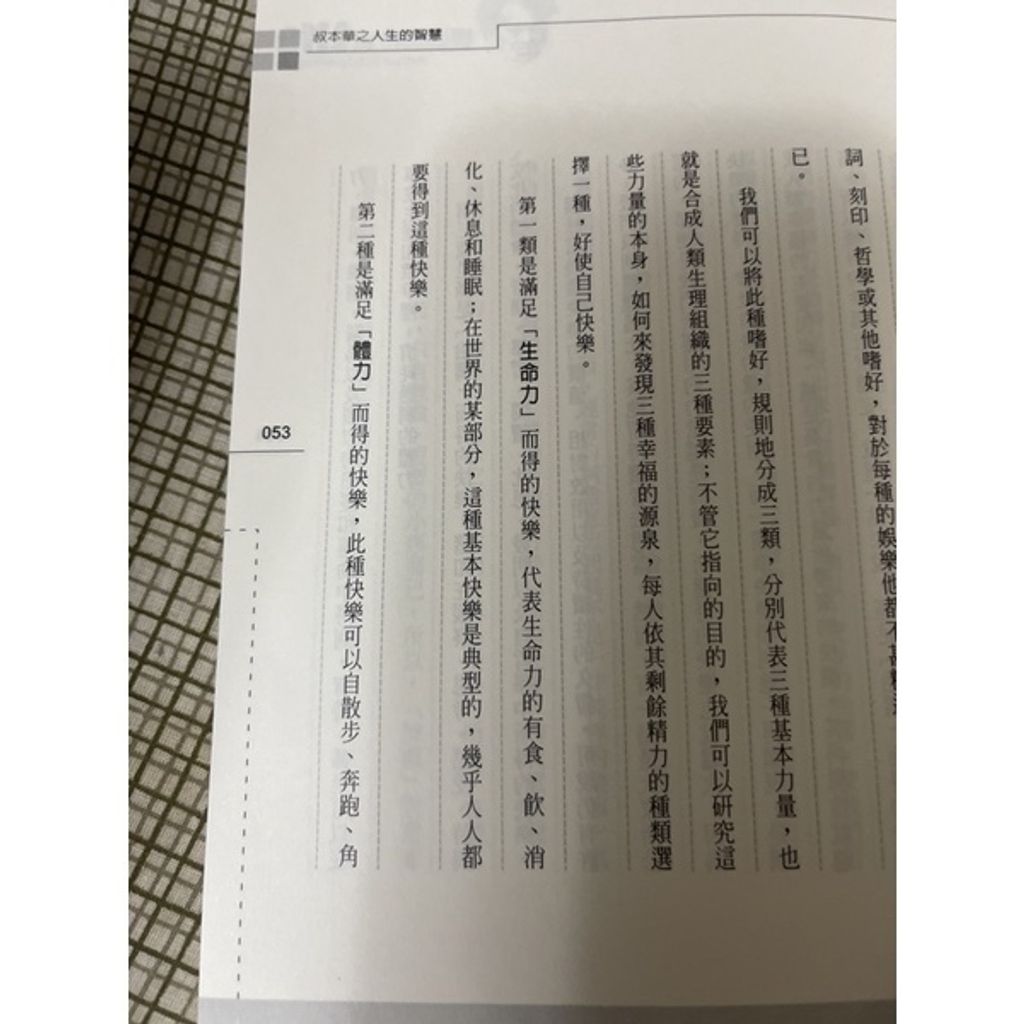 叔本華之人生的智慧
詞、刻印、哲學或其他嗜好，對於每種的娛樂他都不甚
已。
我們可以將此種嗜好，規則地分成三類，分別代表三種基本力量，也
就是合成人類生理組織的三種要素；不管它指向的目的，我們可以研究這
些力量的本身，如何來發現三種幸福的源泉，每人依其剩餘精力的種類選
擇一種，好使自己快樂。
第一類是滿足「生命力」而得的快樂，代表生命力的有食、飲、消
化、休息和睡眠；在世界的某部分，這種基本快樂是典型的，幾乎人人都
要得到這種快樂。
第二種是滿足「體力」而得的快樂，此種快樂可以自散步、奔跑、角
053